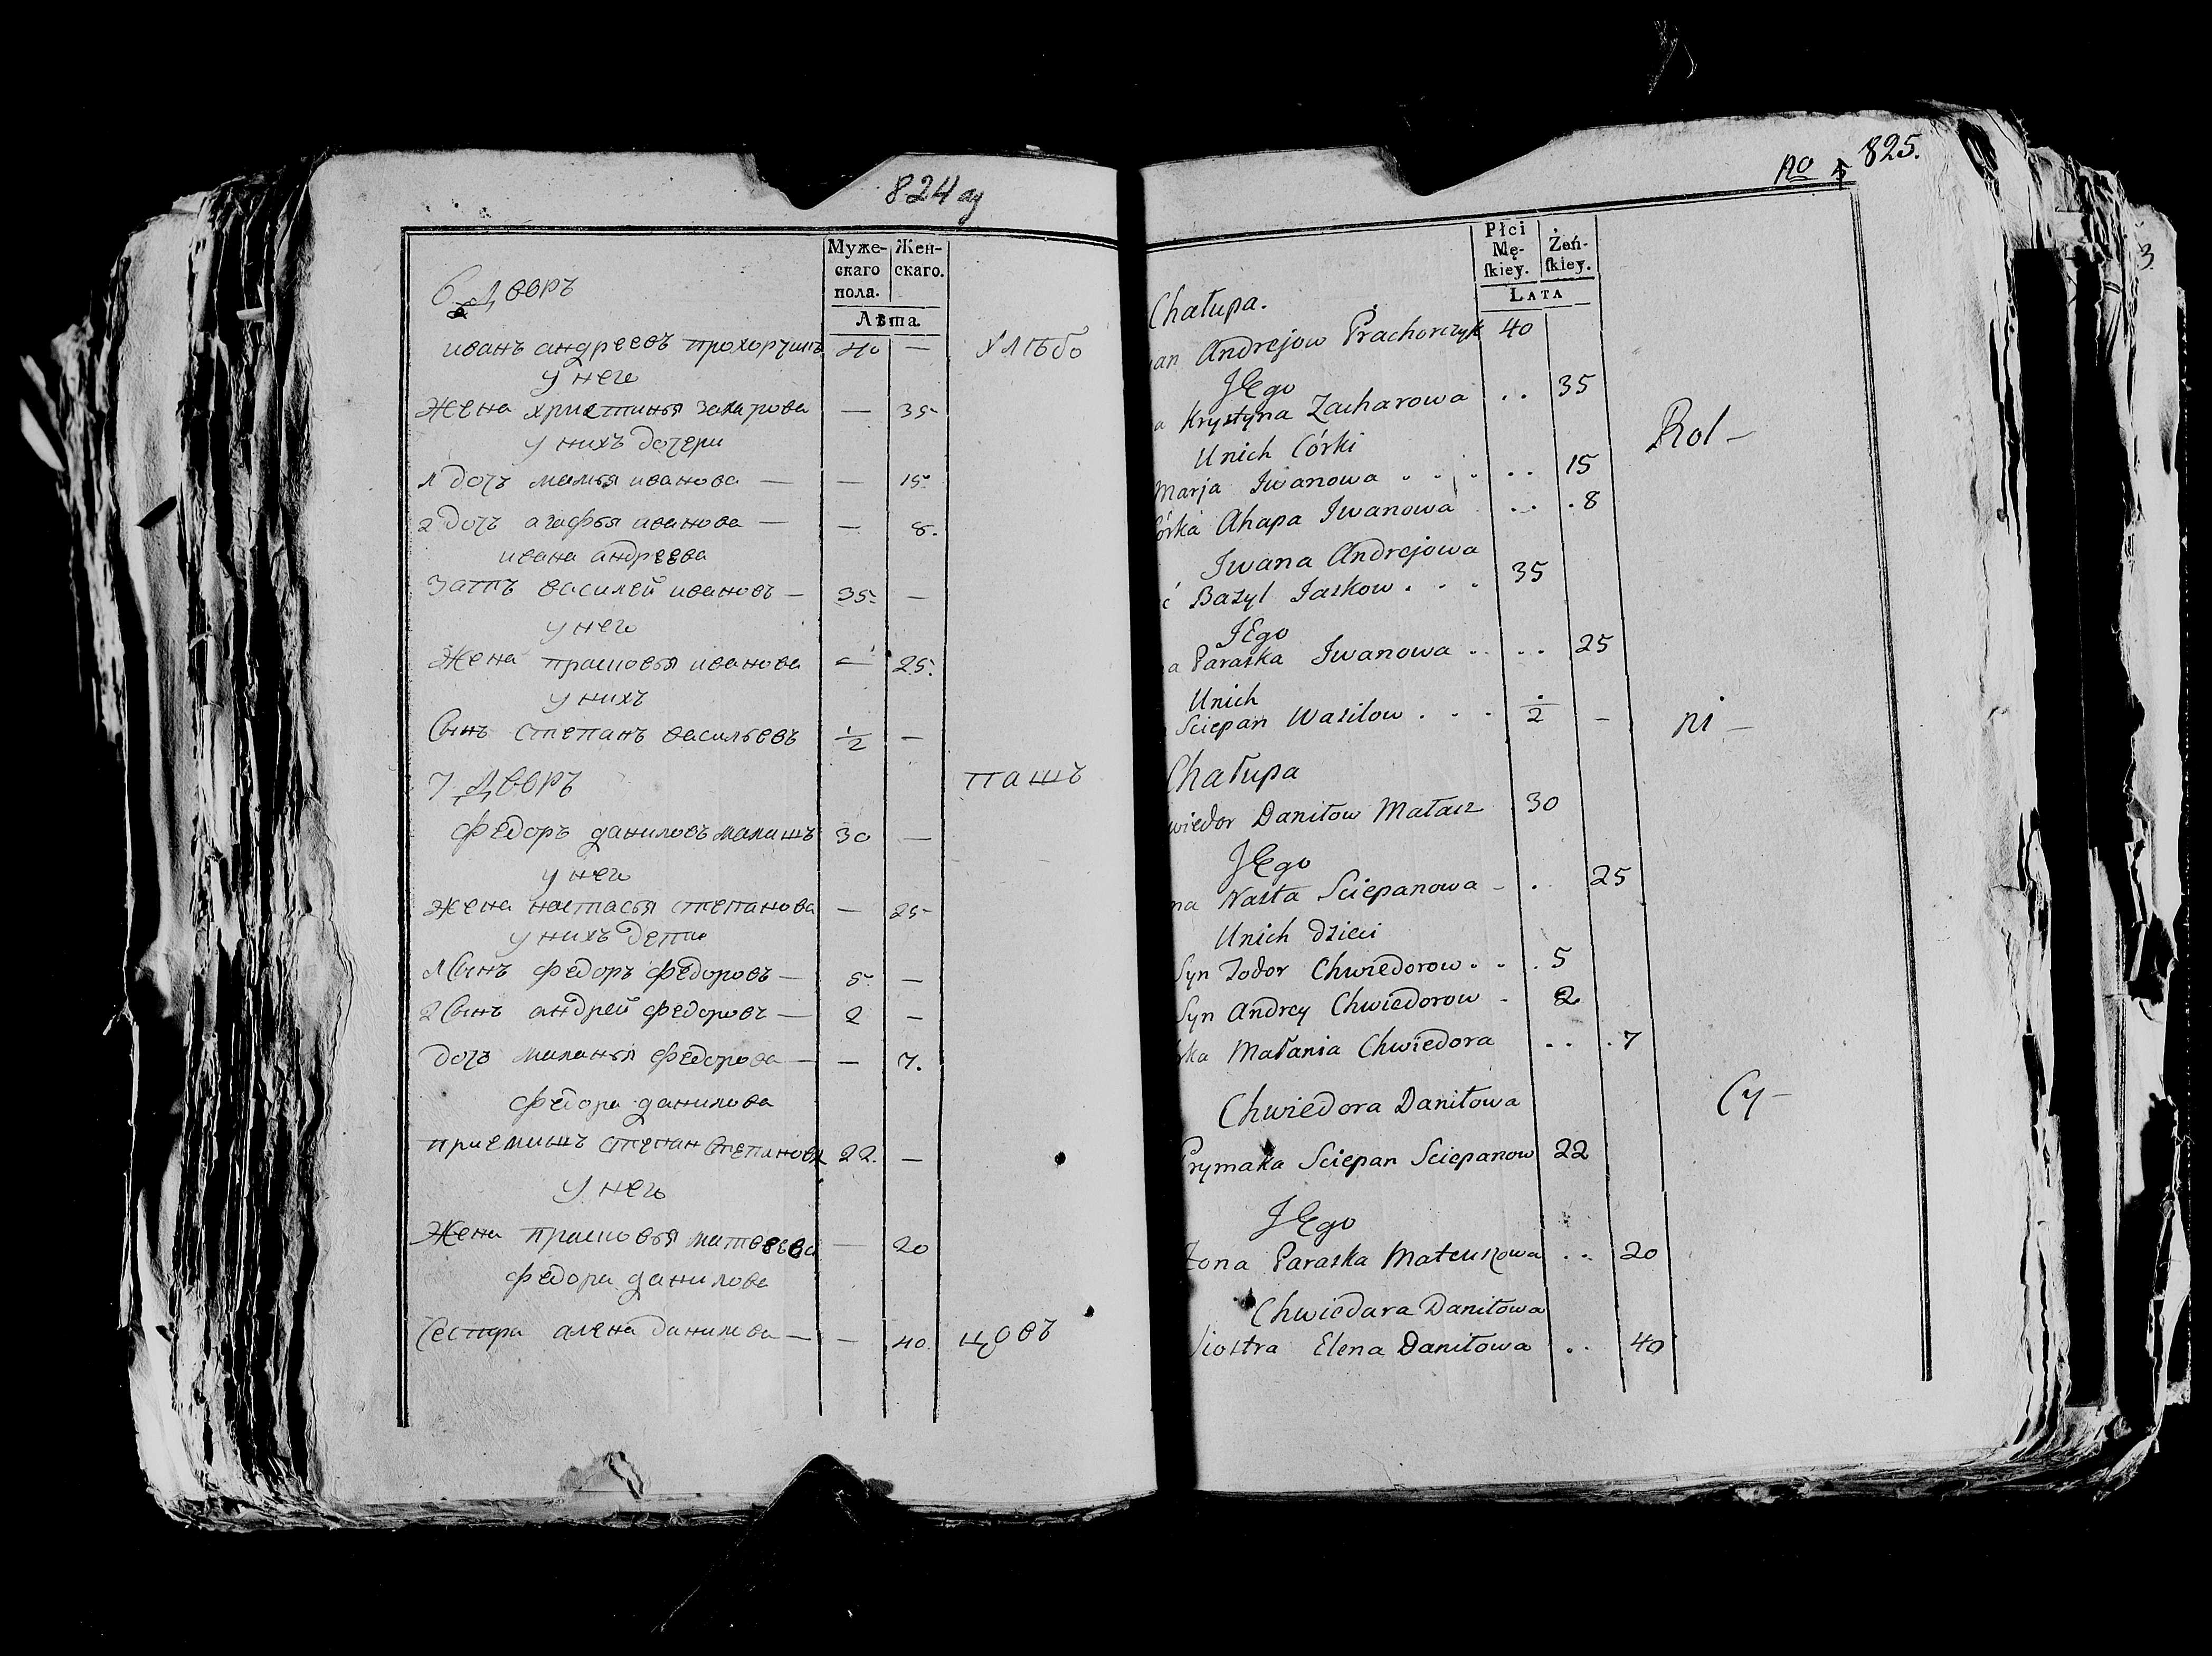 824 об
Муже-
скаго
пола.
Жен-
скаго.
Лѣта.
6 Дворъ
иванъ андреевъ прохорчикъ 40 — хлѣбо
у него
жена христинья захарова — 35
у нихъ дочери
1 дочь марья иванова — — 15
2 дочь агафья иванова — — 8.
ивана андреева
зять василей ивановъ — 35 —
у него
Жена прасковья иванова — 25.
у нихъ
Сынъ степанъ васильевъ 1/2 —
7 Дворъ пашъ
федоръ даниловъ малашъ 30 —
у него
жена настасья степанова — 25
у нихъ дети
1 Сынъ федоръ федоровъ — 5 —
2 Сынъ андрей федоровъ — 2 —
дочь маланья федорова — — 7.
федора данилова
приемышъ степан степановъ 22. —
у него
Жена прасковья матвеева — 20
федора данилова
Сестра алена данилова — — 40 цовъ
no 5 825.
Płci
Mę-
ſkiey.
Żeń-
ſkiey.
LATA
Chałupa.
an Andrejow Prachorczyk 40
JEgo
a Krystyna Zacharowa .. 35
Unich Córki
Marja Iwanowa . . . .. 15
órka Ahapa Iwanowa .. . 8
Rol –
Iwana Andrejowa
ć Bazyl Jaskow . . . 35
JEgo
a Paraska Iwanowa .. .. 25
Unich
Sciepan Wasilow . . . 1/2 –
ni –
Chałupa
wiedor Daniłow Małasz 30
JEgo
na Nasta Sciepanowa – . . 25
Unich dzieci
Syn Todor Chwiedorow . . . 5
Syn Andrey Chwiedorow – 2
rka Małania Chwiedora .. . 7
Cy –
Chwiedora Daniłowa
Prymaka Sciepan Sciepanow 22
JEgo
Żona Paraska Mateuszowa .. 20
Chwiedara Daniłowa
Siostra Elena Daniłowa .. 40
3